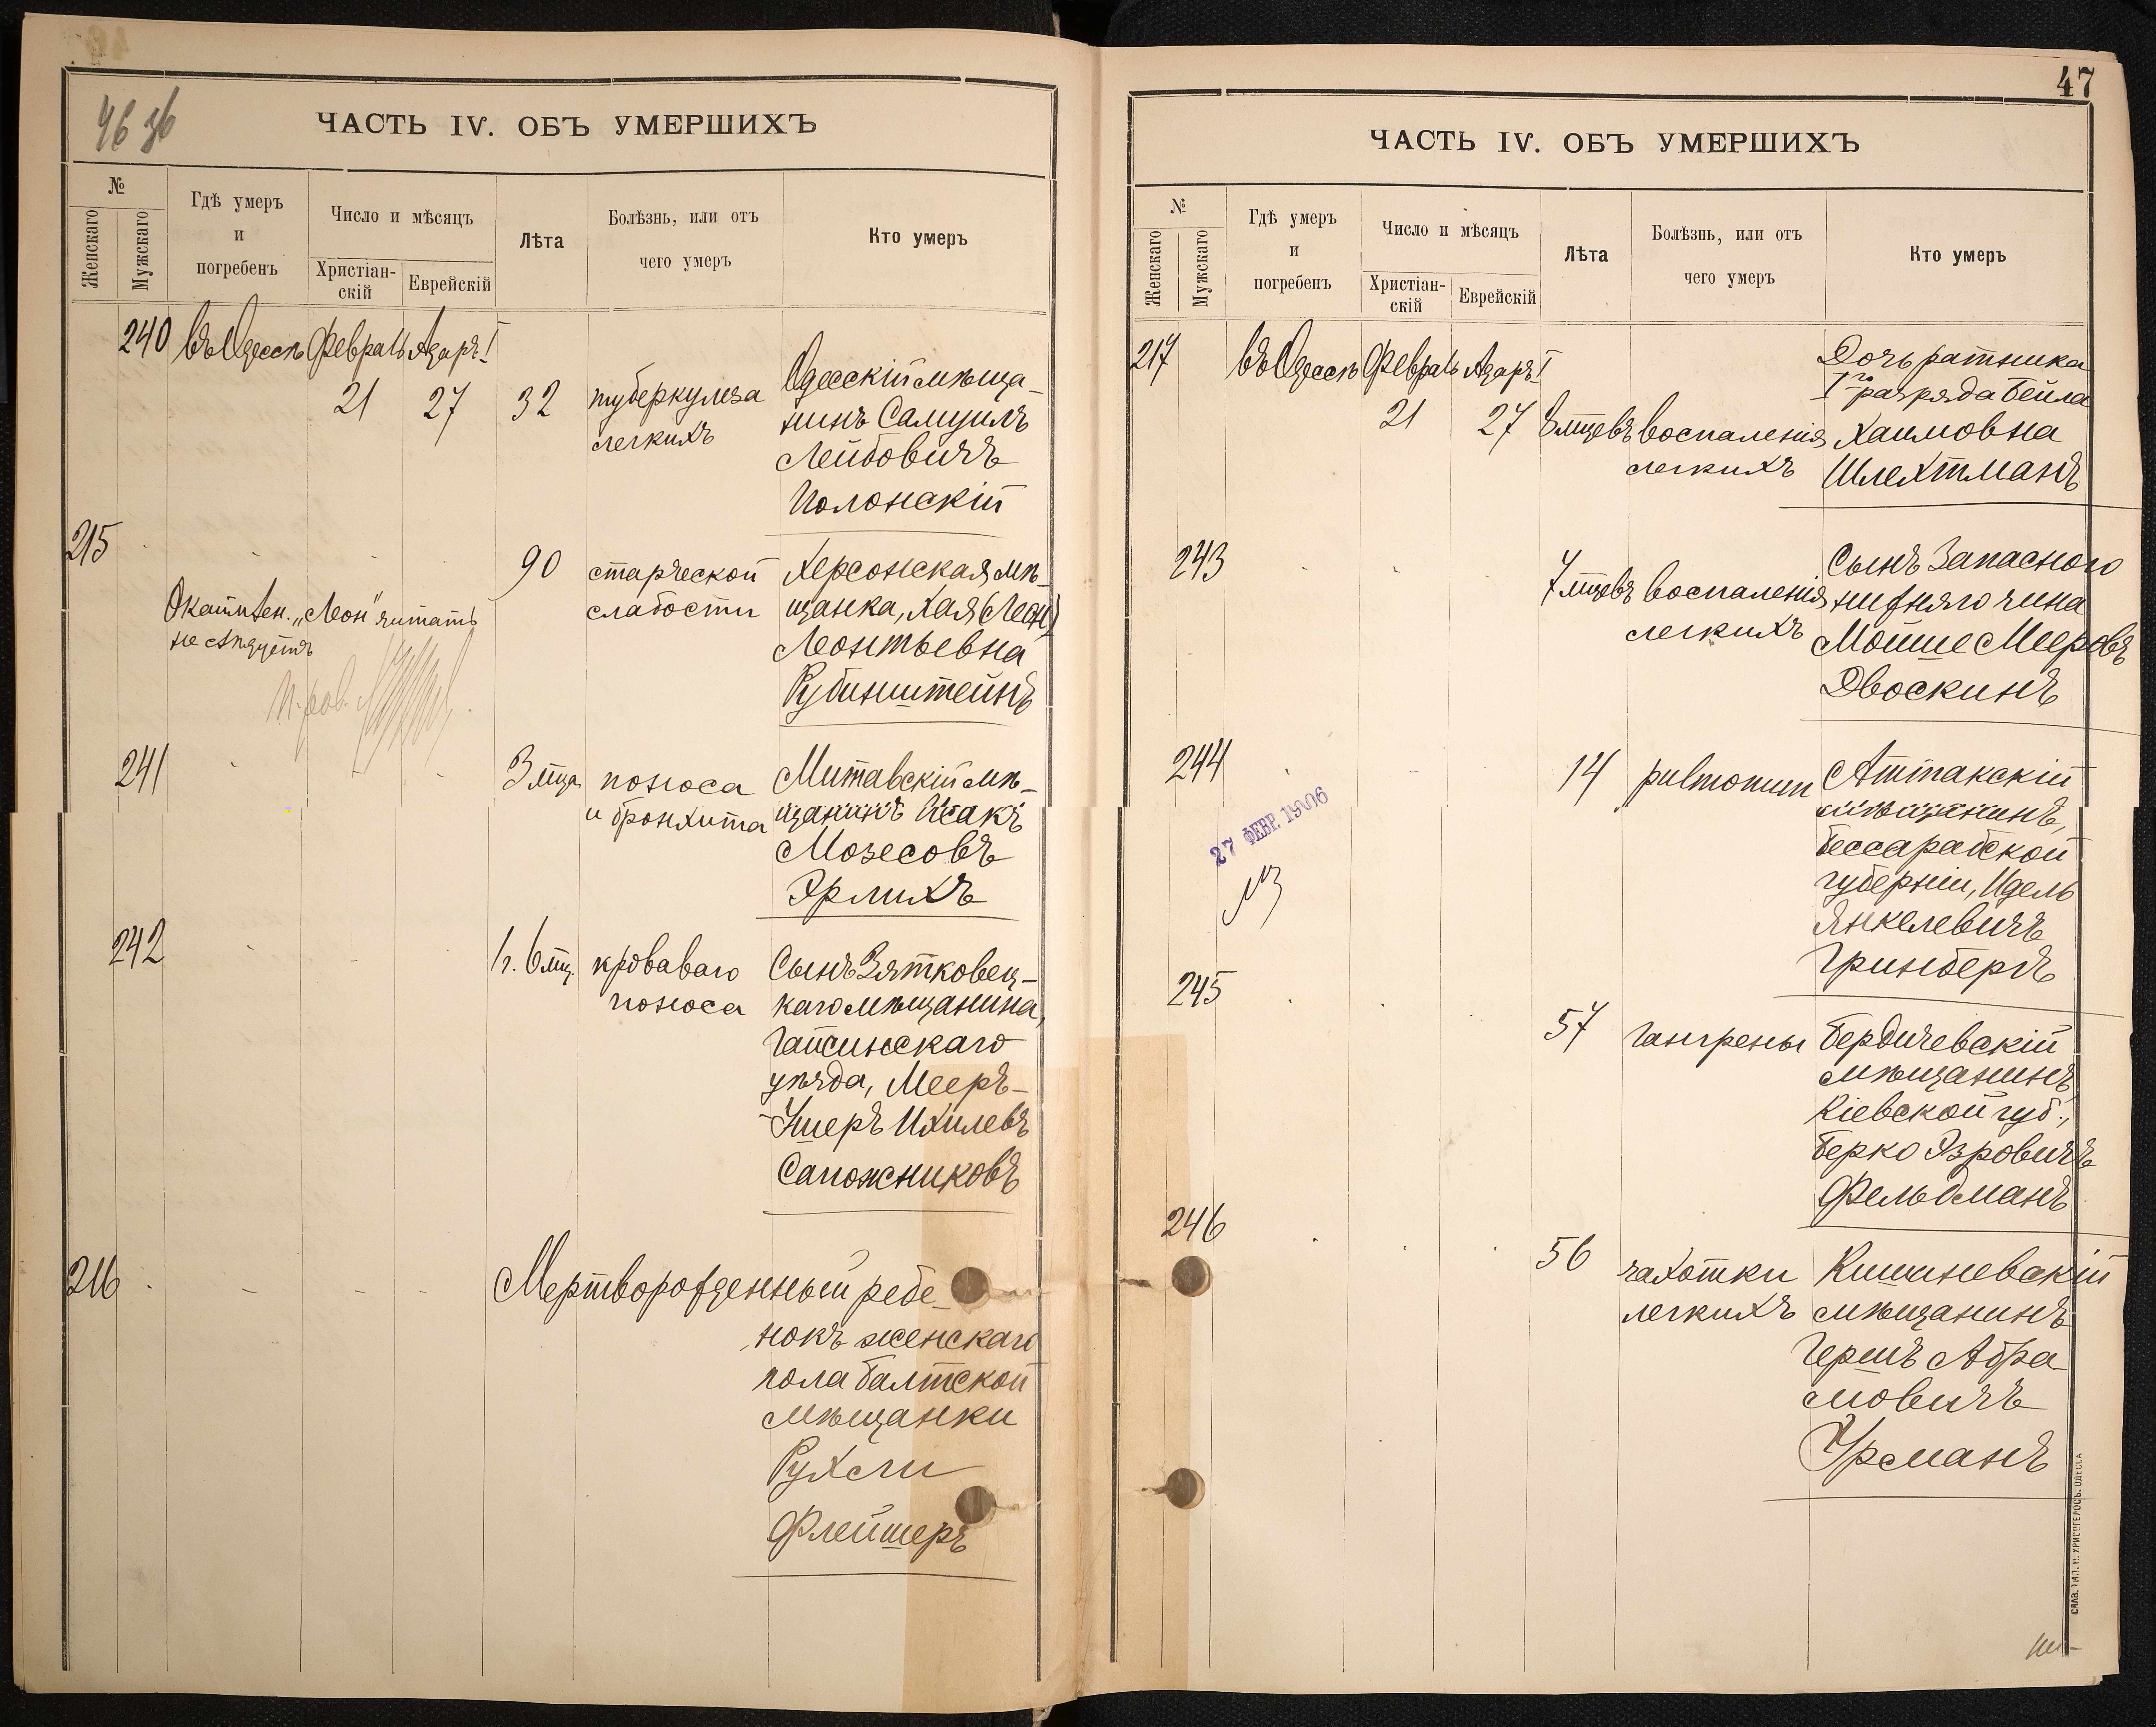 46 36
ЧАСТЬ IV. ОБЪ УМЕРШИХЪ
№
Женскаго
Мужскаго
Гдѣ умеръ
и
погребенъ
Число и мѣсяцъ
Христіан-
скій
Еврейскій
Лѣта
Болѣзнь, или отъ
чего умеръ
Кто умеръ
240 въ Одессѣ Февраль Адаръ I
21 27 32
туберкулеза
легкихъ
Одесскій мѣща-
нинъ Самуилъ
Лейбовичъ
Полонскій
215
90
старческой
слабости
Херсонская мѣ-
щанка, Хая (Леон)
Леонтьевна
Рубинштейнъ
"Леон" читать
не слѣдуетъ
241
3 мца
поноса
и бронхита
Митавскій мѣ-
щанинъ Исакъ
Мозесовъ
Эрлихъ
242
1 г. 6 мц.
кроваваго
поноса
Сынъ Зятковец-
каго мѣщанина,
Гайсинскаго
уѣзда, Мееръ-
-Ушеръ Ихилевъ
Сапожниковъ
216
Мертворожденный ребе-
нокъ женскаго
пола балтской
мѣщанки
Рухли
Флейшеръ
47
ЧАСТЬ IV. ОБЪ УМЕРШИХЪ
№
Женскаго
Мужскаго
Гдѣ умеръ
и
погребенъ
Число и мѣсяцъ
Христіан-
скій
Еврейскій
Лѣта
Болѣзнь, или отъ
чего умеръ
Кто умеръ
217 въ Одессѣ Февраль Адаръ I
21 27 8 мцевъ
воспаленія
легкихъ
Дочь ратника
I го разряда Бейла
Хаимовна
Шлехтманъ
243
7 мцевъ
воспаленія
легкихъ
Сынъ Запасного
нижняго чина
Мойше Мееровъ
Двоскинъ
244
14
pulmonum
Аттакскій
мѣщанинъ,
Бессарабской
губерніи, Идель
Янкелевичъ
Гринбергъ
27 ФЕВР. 1906
245
57
гангрены
Бердичевскій
мѣщанинъ
Кіевской губ.,
Берко Эзровичъ
Фельдманъ
246
56
чахотки
легкихъ
Кишиневскій
мѣщанинъ
Гершъ Абра-
мовичъ
Урманъ